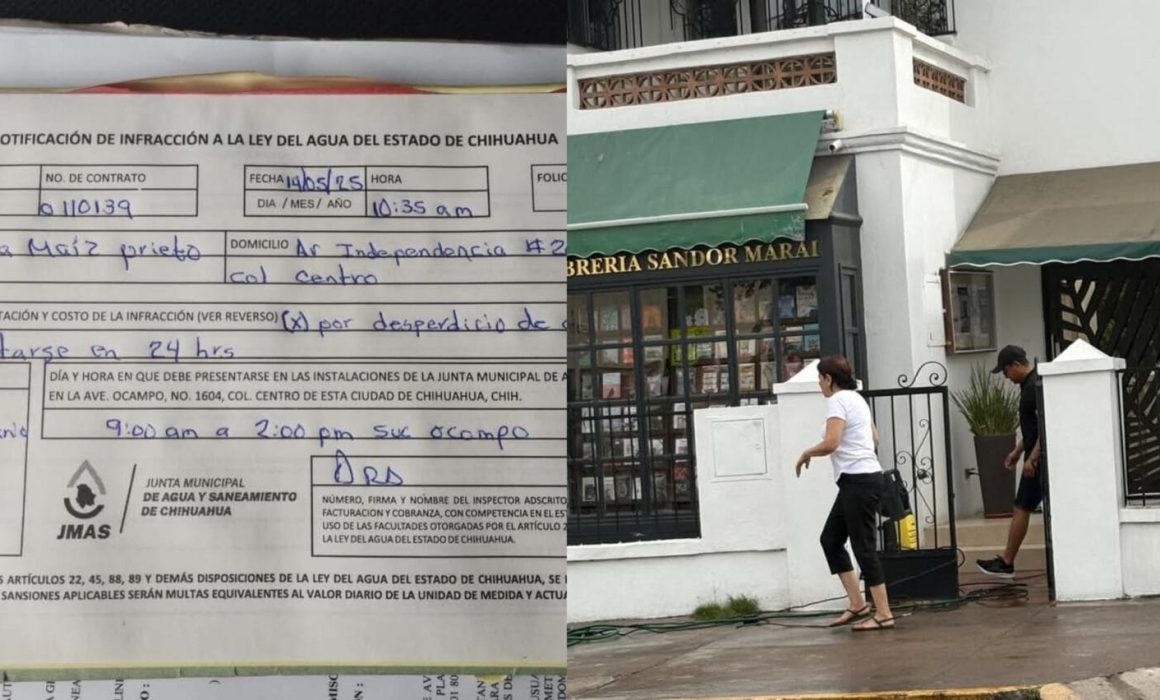 OTIFICACIÓN DE INFRACCIÓN A LA LEY DEL AGUA DEL ESTADO DE CHIHUAHUA
NO. DE CONTRATO
0110139
FECHA 14/05/25
DIA / MES / AÑO
HORA
10:35 am
FOLIO
a Maíz prieto
DOMICILIO Av Independencia #2
Col Centro
TACIÓN Y COSTO DE LA INFRACCIÓN (VER REVERSO) (x) por desperdicio de
tarse en 24 hrs
DÍA Y HORA EN QUE DEBE PRESENTARSE EN LAS INSTALACIONES DE LA JUNTA MUNICIPAL DE A
EN LA AVE. OCAMPO, NO. 1604, COL. CENTRO DE ESTA CIUDAD DE CHIHUAHUA, CHIH.
9:00 am a 2:00 pm suc ocampo
JMAS
JUNTA MUNICIPAL
DE AGUA Y SANEAMIENTO
DE CHIHUAHUA
NÚMERO, FIRMA Y NOMBRE DEL INSPECTOR ADSCRITO
FACTURACIÓN Y COBRANZA, CON COMPETENCIA EN EL EST
USO DE LAS FACULTADES OTORGADAS POR EL ARTÍCULO 2
LA LEY DEL AGUA DEL ESTADO DE CHIHUAHUA.
S ARTÍCULOS 22, 45, 88, 89 Y DEMÁS DISPOSICIONES DE LA LEY DEL AGUA DEL ESTADO DE CHIHUAHUA, SE
SANSIONES APLICABLES SERÁN MULTAS EQUIVALENTES AL VALOR DIARIO DE LA UNIDAD DE MEDIDA Y ACTUA
BRERIA SANDOR MARAI